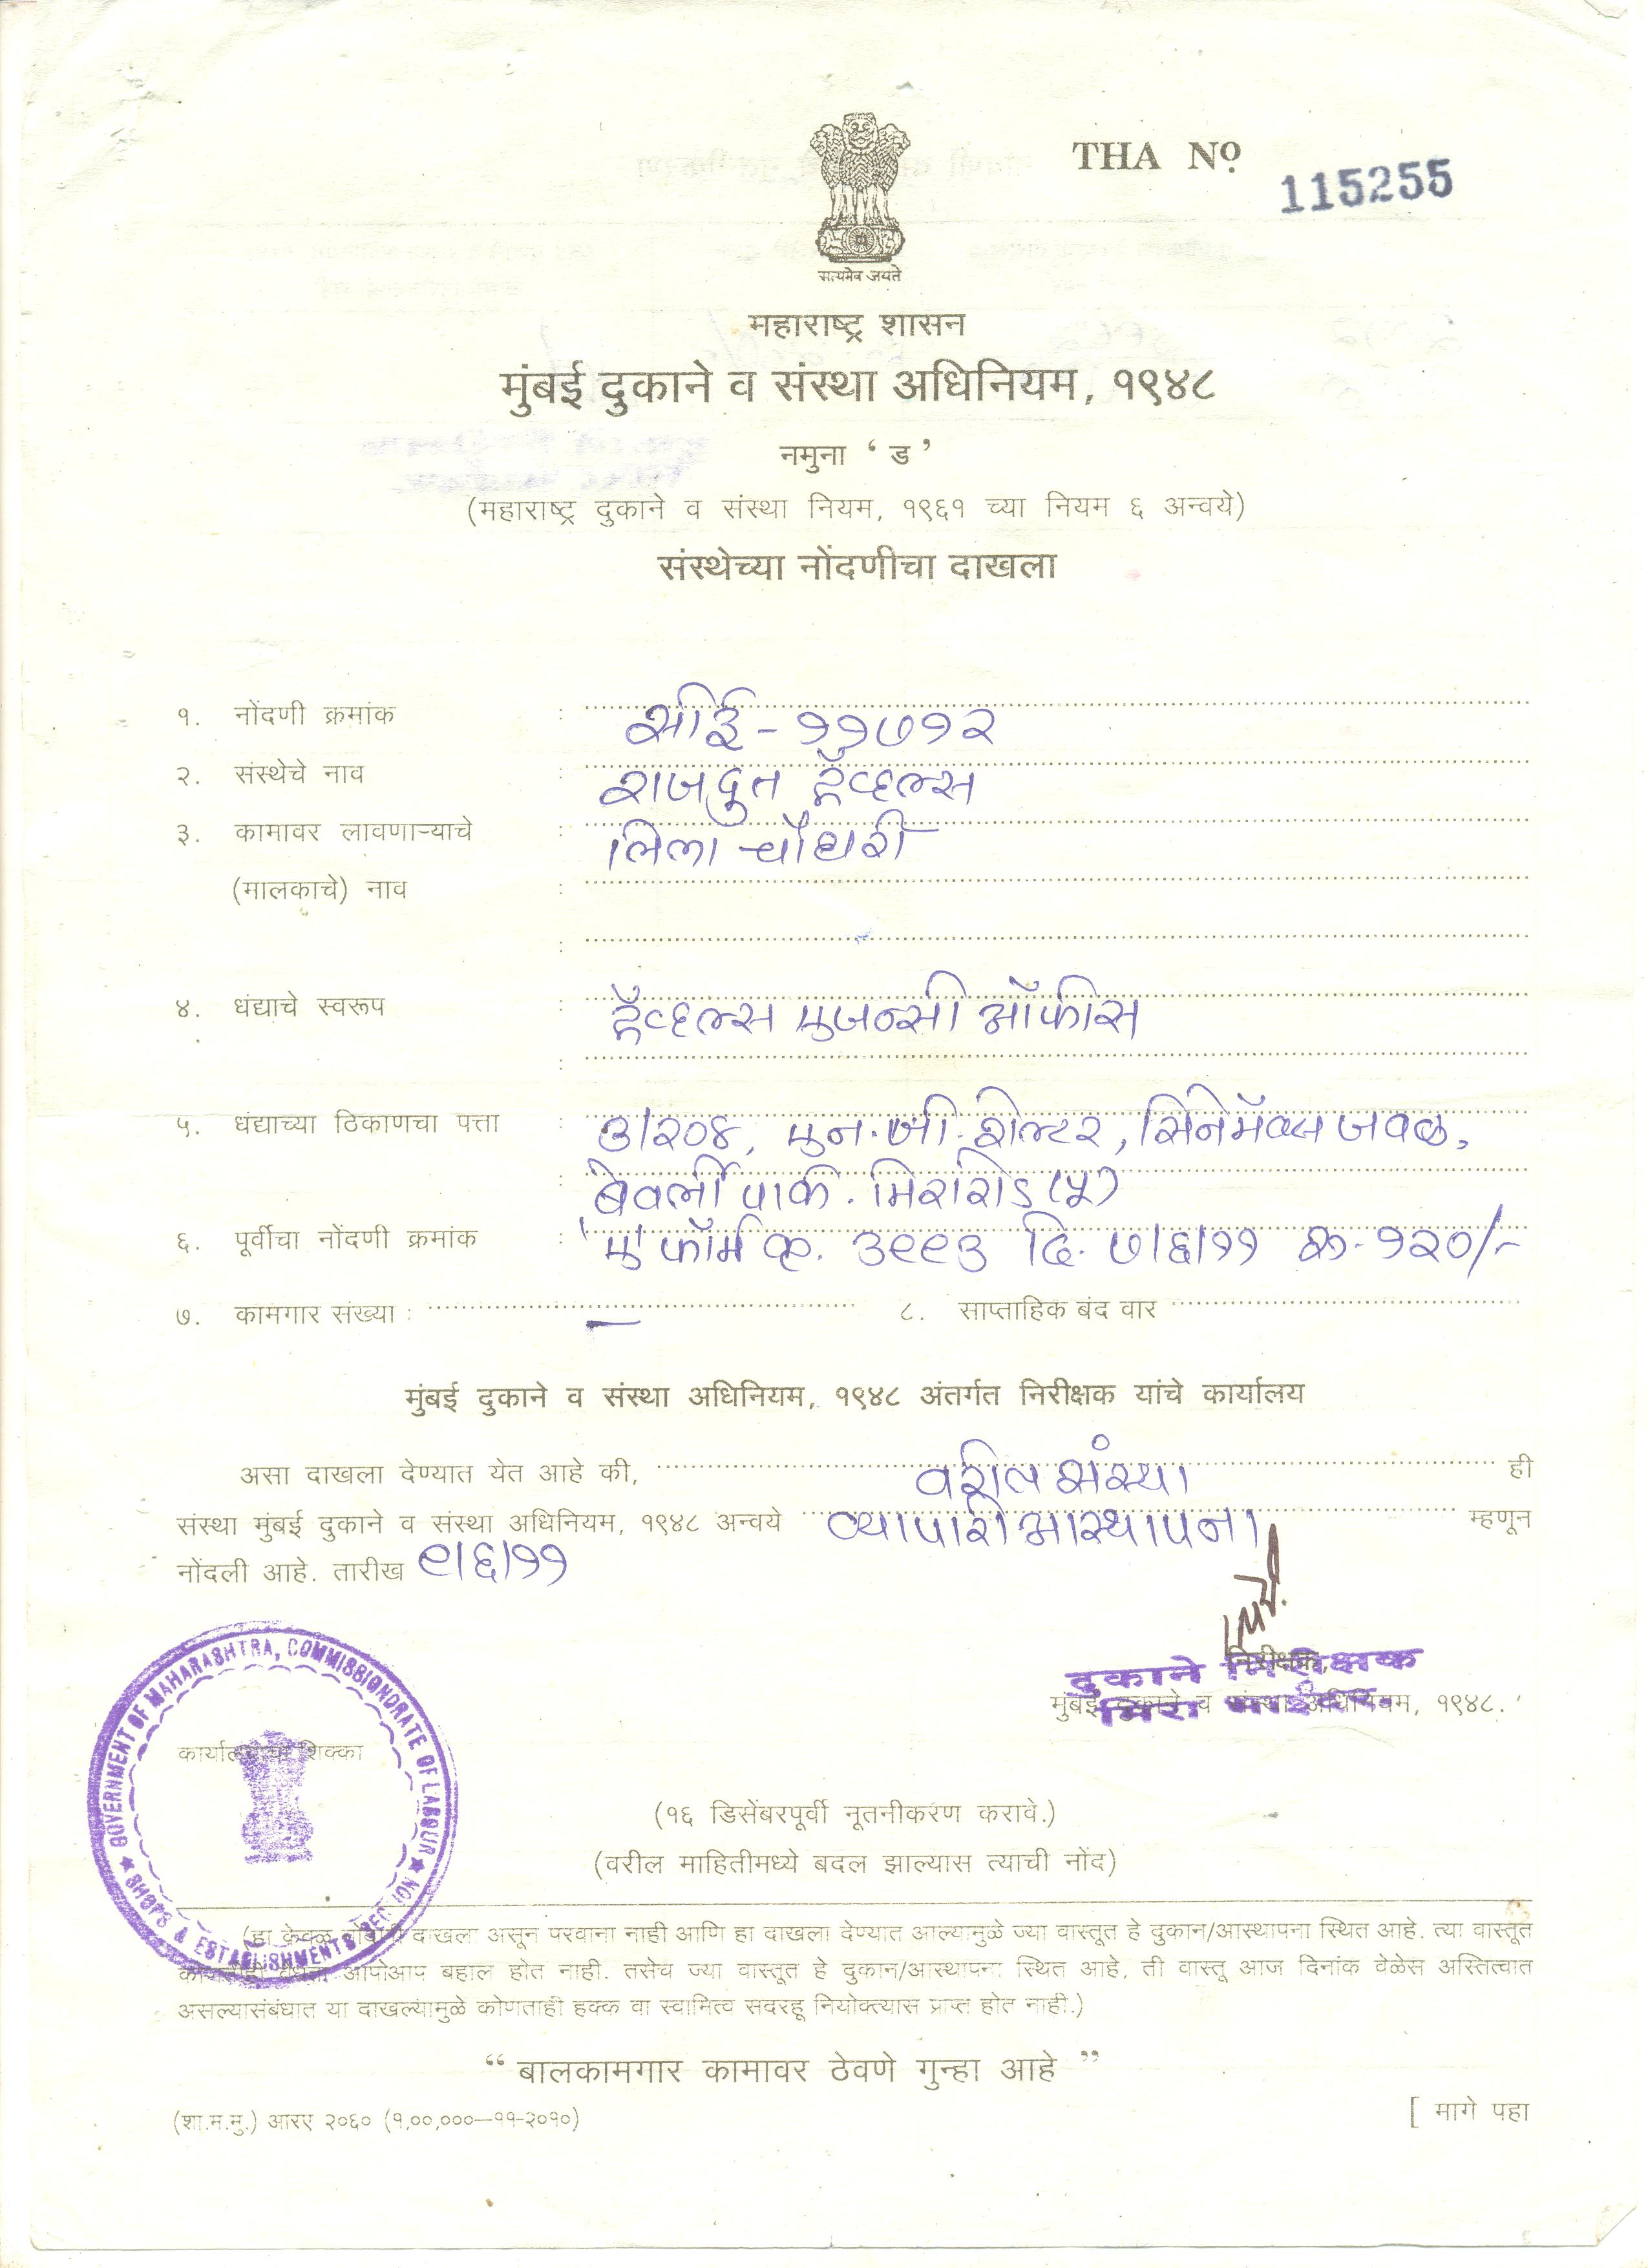 THA Nº 115255
सत्यमेव जयते
महाराष्ट्र शासन
मुंबई दुकाने व संस्था अधिनियम, १९४८
नमुना ‘ ड ’
(महाराष्ट्र दुकाने व संस्था नियम, १९६१ च्या नियम ६ अन्वये)
संस्थेच्या नोंदणीचा दाखला
१. नोंदणी क्रमांक : सीई - ११७१२
२. संस्थेचे नाव : राजदुत ट्रॅव्हल्स
३. कामावर लावणाऱ्याचे : लिला चौधरी
(मालकाचे) नाव :
:
४. धंद्याचे स्वरूप : ट्रॅव्हल्स एजन्सी ऑफीस
:
५. धंद्याच्या ठिकाणचा पत्ता : ३/२०४, एन.जी. शेल्टर, सिनेमॅक्स जवळ,
: बेवर्ली पार्क. मिरारोड (पू)
६. पूर्वीचा नोंदणी क्रमांक : 'ए' फॉर्म क्र. ३९९३ दि. ७/६/११ रू. १२०/-
७. कामगार संख्या : — ८. साप्ताहिक बंद वार
मुंबई दुकाने व संस्था अधिनियम, १९४८ अंतर्गत निरीक्षक यांचे कार्यालय
असा दाखला देण्यात येत आहे की, वरील संस्था ही
संस्था मुंबई दुकाने व संस्था अधिनियम, १९४८ अन्वये व्यापारी आस्थापना म्हणून
नोंदली आहे. तारीख ९/६/११
निरीक्षक,
दुकाने निरीक्षक
मुंबई दुकाने व संस्था अधिनियम, १९४८.
मिरा भाईंदर.
GOVERNMENT OF MAHARASHTRA, COMMISSIONORATE OF LABOUR
★ SHOPS & ESTABLISHMENTS SECTION ★
कार्यालयाचा शिक्का
(१६ डिसेंबरपूर्वी नूतनीकरण करावे.)
(वरील माहितीमध्ये बदल झाल्यास त्याची नोंद)
(हा केवळ नोंदणी दाखला असून परवाना नाही आणि हा दाखला देण्यात आल्यामुळे ज्या वास्तूत हे दुकान/आस्थापना स्थित आहे. त्या वास्तूत
आपोआप बहाल होत नाही. तसेच ज्या वास्तूत हे दुकान/आस्थापना स्थित आहे, ती वास्तू आज दिनांक वेळेस अस्तित्वात
असल्यासंबंधात या दाखल्यामुळे कोणताही हक्क वा स्वामित्व सदरहू नियोक्त्यास प्राप्त होत नाही.)
“ बालकामगार कामावर ठेवणे गुन्हा आहे ”
(शा.म.मु.) आरए २०६० (१,००,०००—११-२०१०) [ मागे पहा